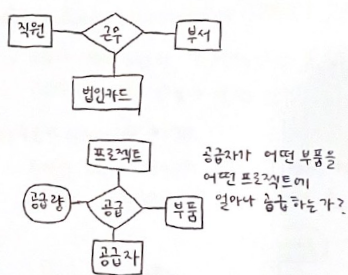 직원
근무
부서
법인카드
프로젝트
공급량
공급
부품
공급자
공급자가 어떤 부품을
어떤 프로젝트에
얼마나 공급하는가?